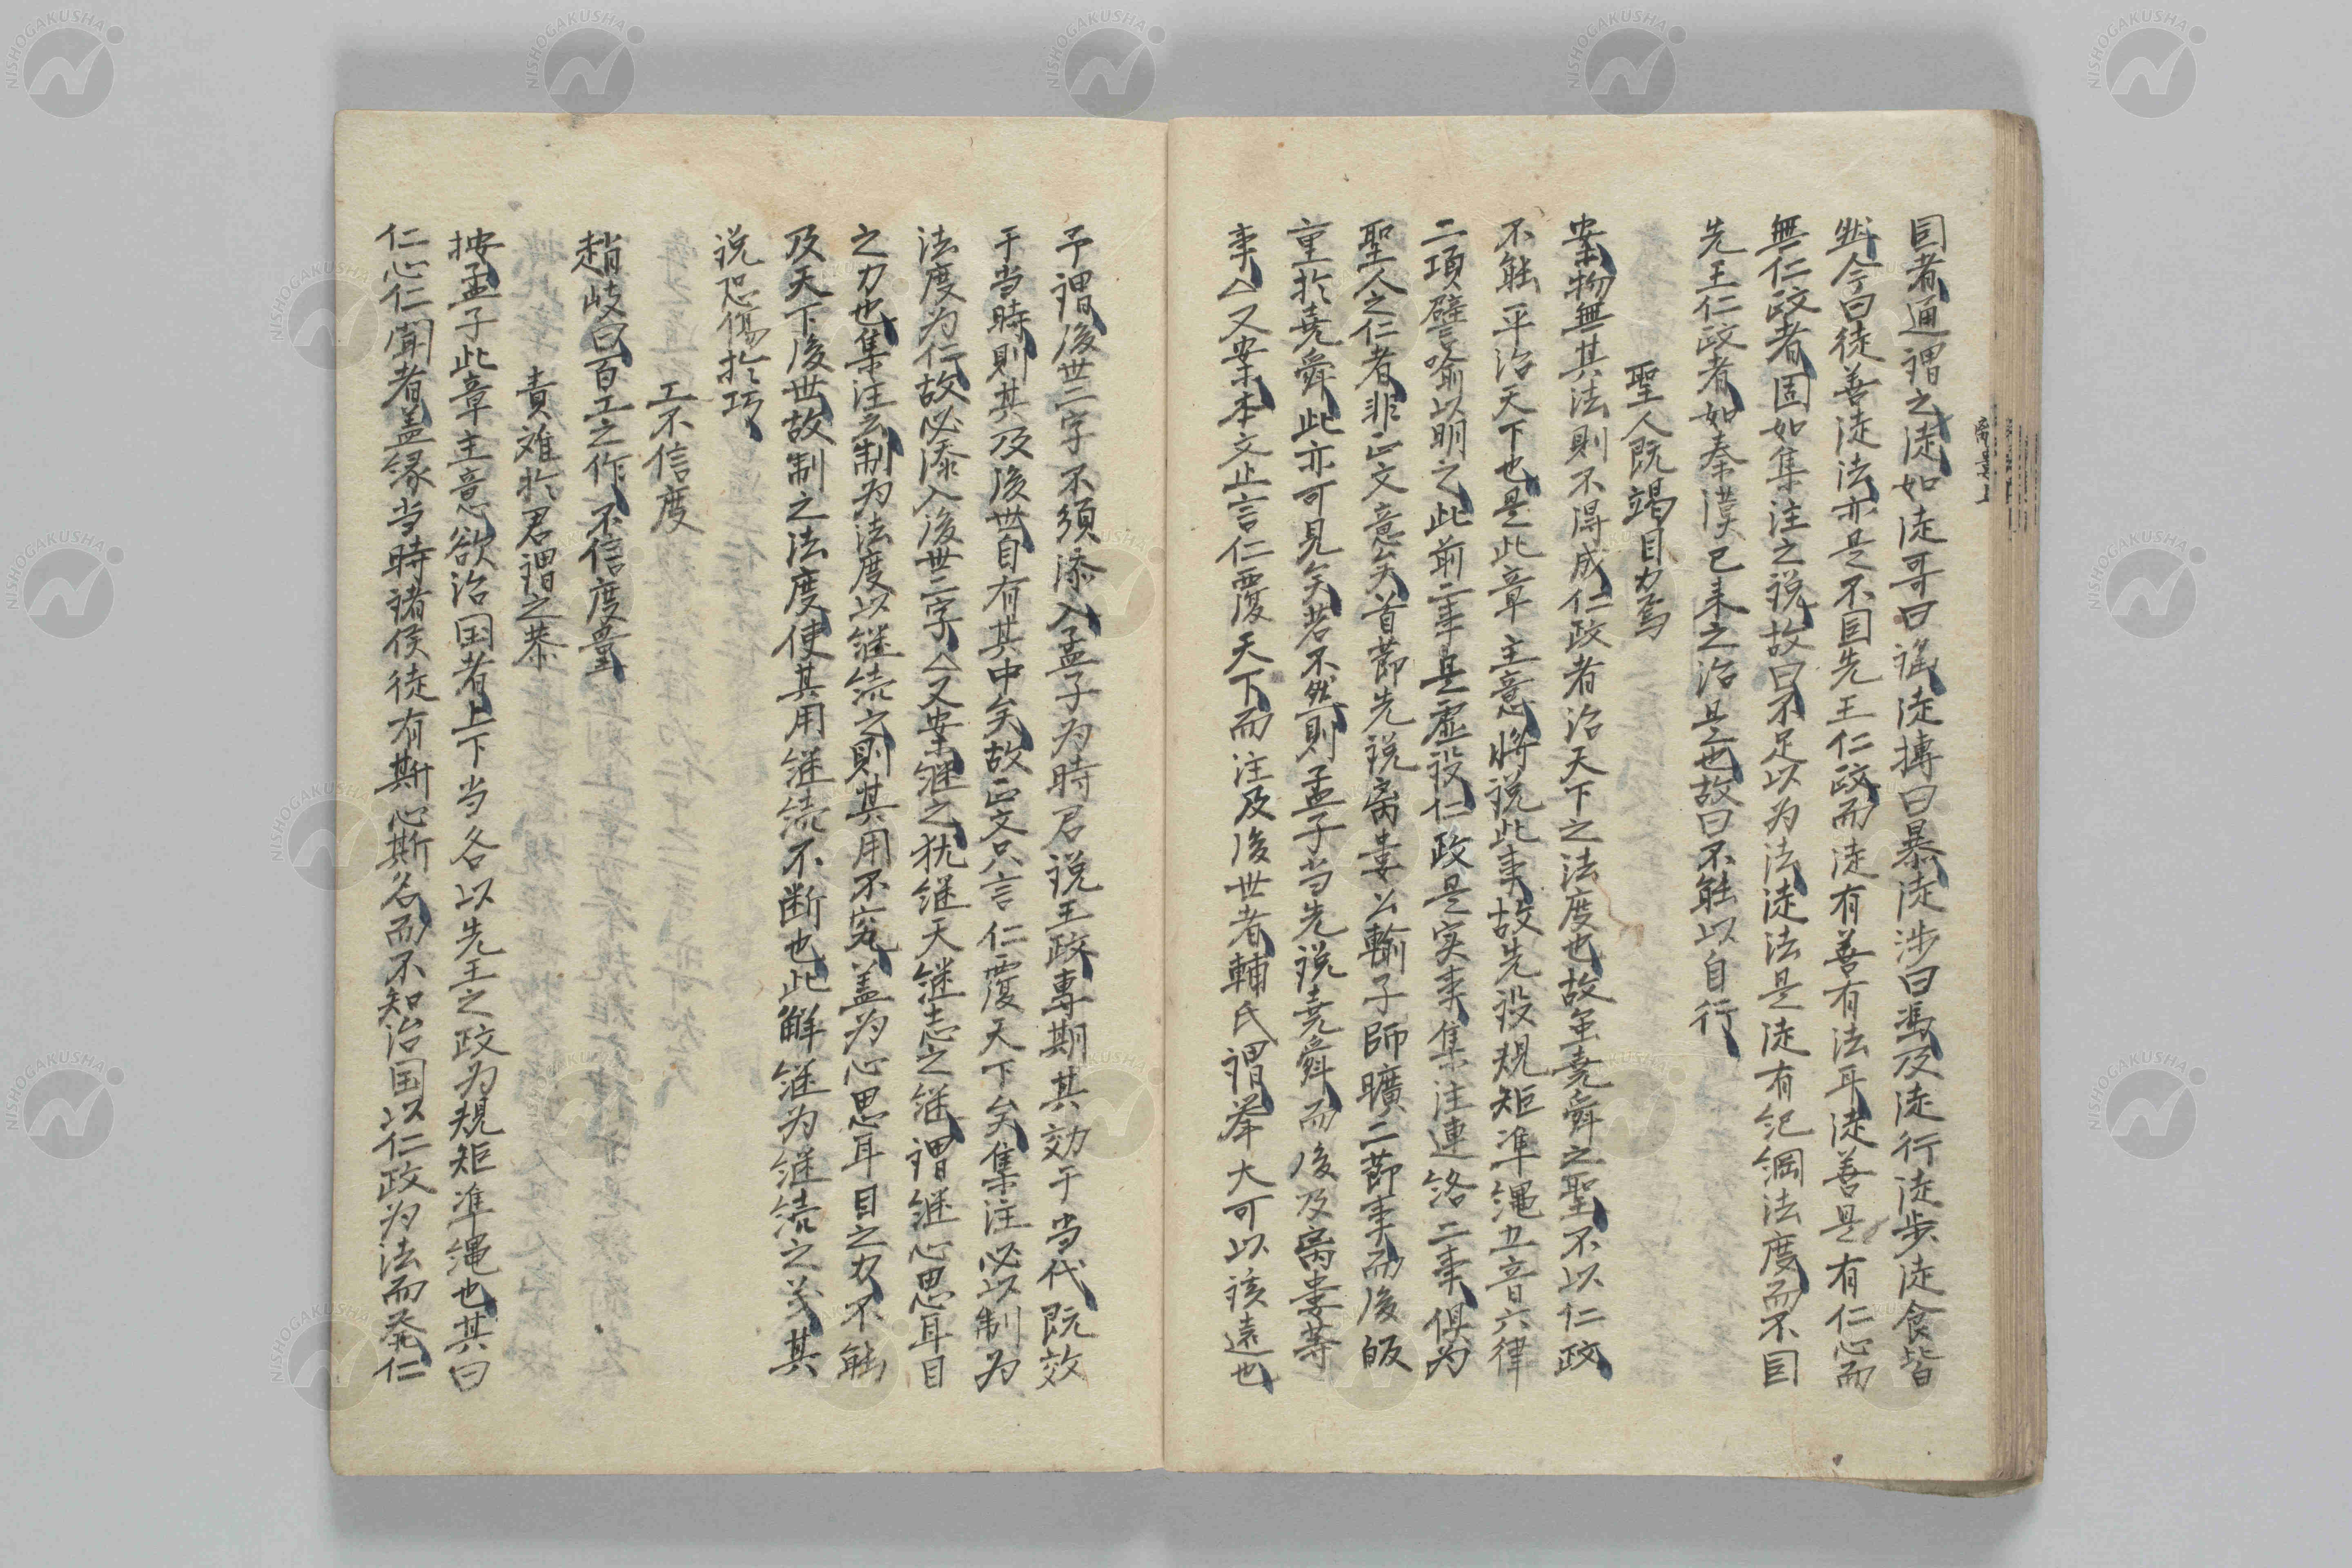 因者通謂之徒如徒哥曰謡徒搏曰暴徒涉曰馮及徒行徒歩徒食皆
然今曰徒善徒法亦是不因先王仁政而徒有善有法耳徒善是有仁心而
無仁政者固如集注之説故曰不足以为法徒法是徒有紀綱法度而不因
先王仁政者如秦漢已来之治是也故曰不能以自行
聖人既竭目力焉
案物無其法則不得成仁政者治天下之法度也故虽堯舜之聖不以仁政
不能平治天下也是此章主意将説此事故先設規矩凖繩五音六律
二項譬喻以明之此前二事是虚設仁政是实事集注連絡二事俱为
聖人之仁者非正文意矣首節先説离婁公輸子師曠二節事而後皈
重於堯舜此亦可見矣若不然則孟子当先説堯舜而後及离婁等
事△又案本文止言仁覆天下而注及後世者輔氏謂举大可以该遠也
予謂後世二字不須添入孟子为時君説王政專期其効于当代既效
于当時則其及後世自有其中矣故正文只言仁覆天下矣集注必以制为
法度为行故必添入後世二字△又案継之犹継天継志之継謂継心思耳目
之力也集注云制为法度以継続之則其用不究盖为心思耳目之力不能
及天下後世故制之法度使其用継続不断也此解継为継続之义其
説恐傷於巧
工不信度
趙岐曰百工之作不信度量
責难於君謂之恭
按孟子此章主意欲治国者上下当各以先王之政为規矩凖繩也其曰
仁心仁聞者盖縁当時諸侯徒有斯心斯名而不知治国以仁政为法而発仁
NISHOGAKUSHA